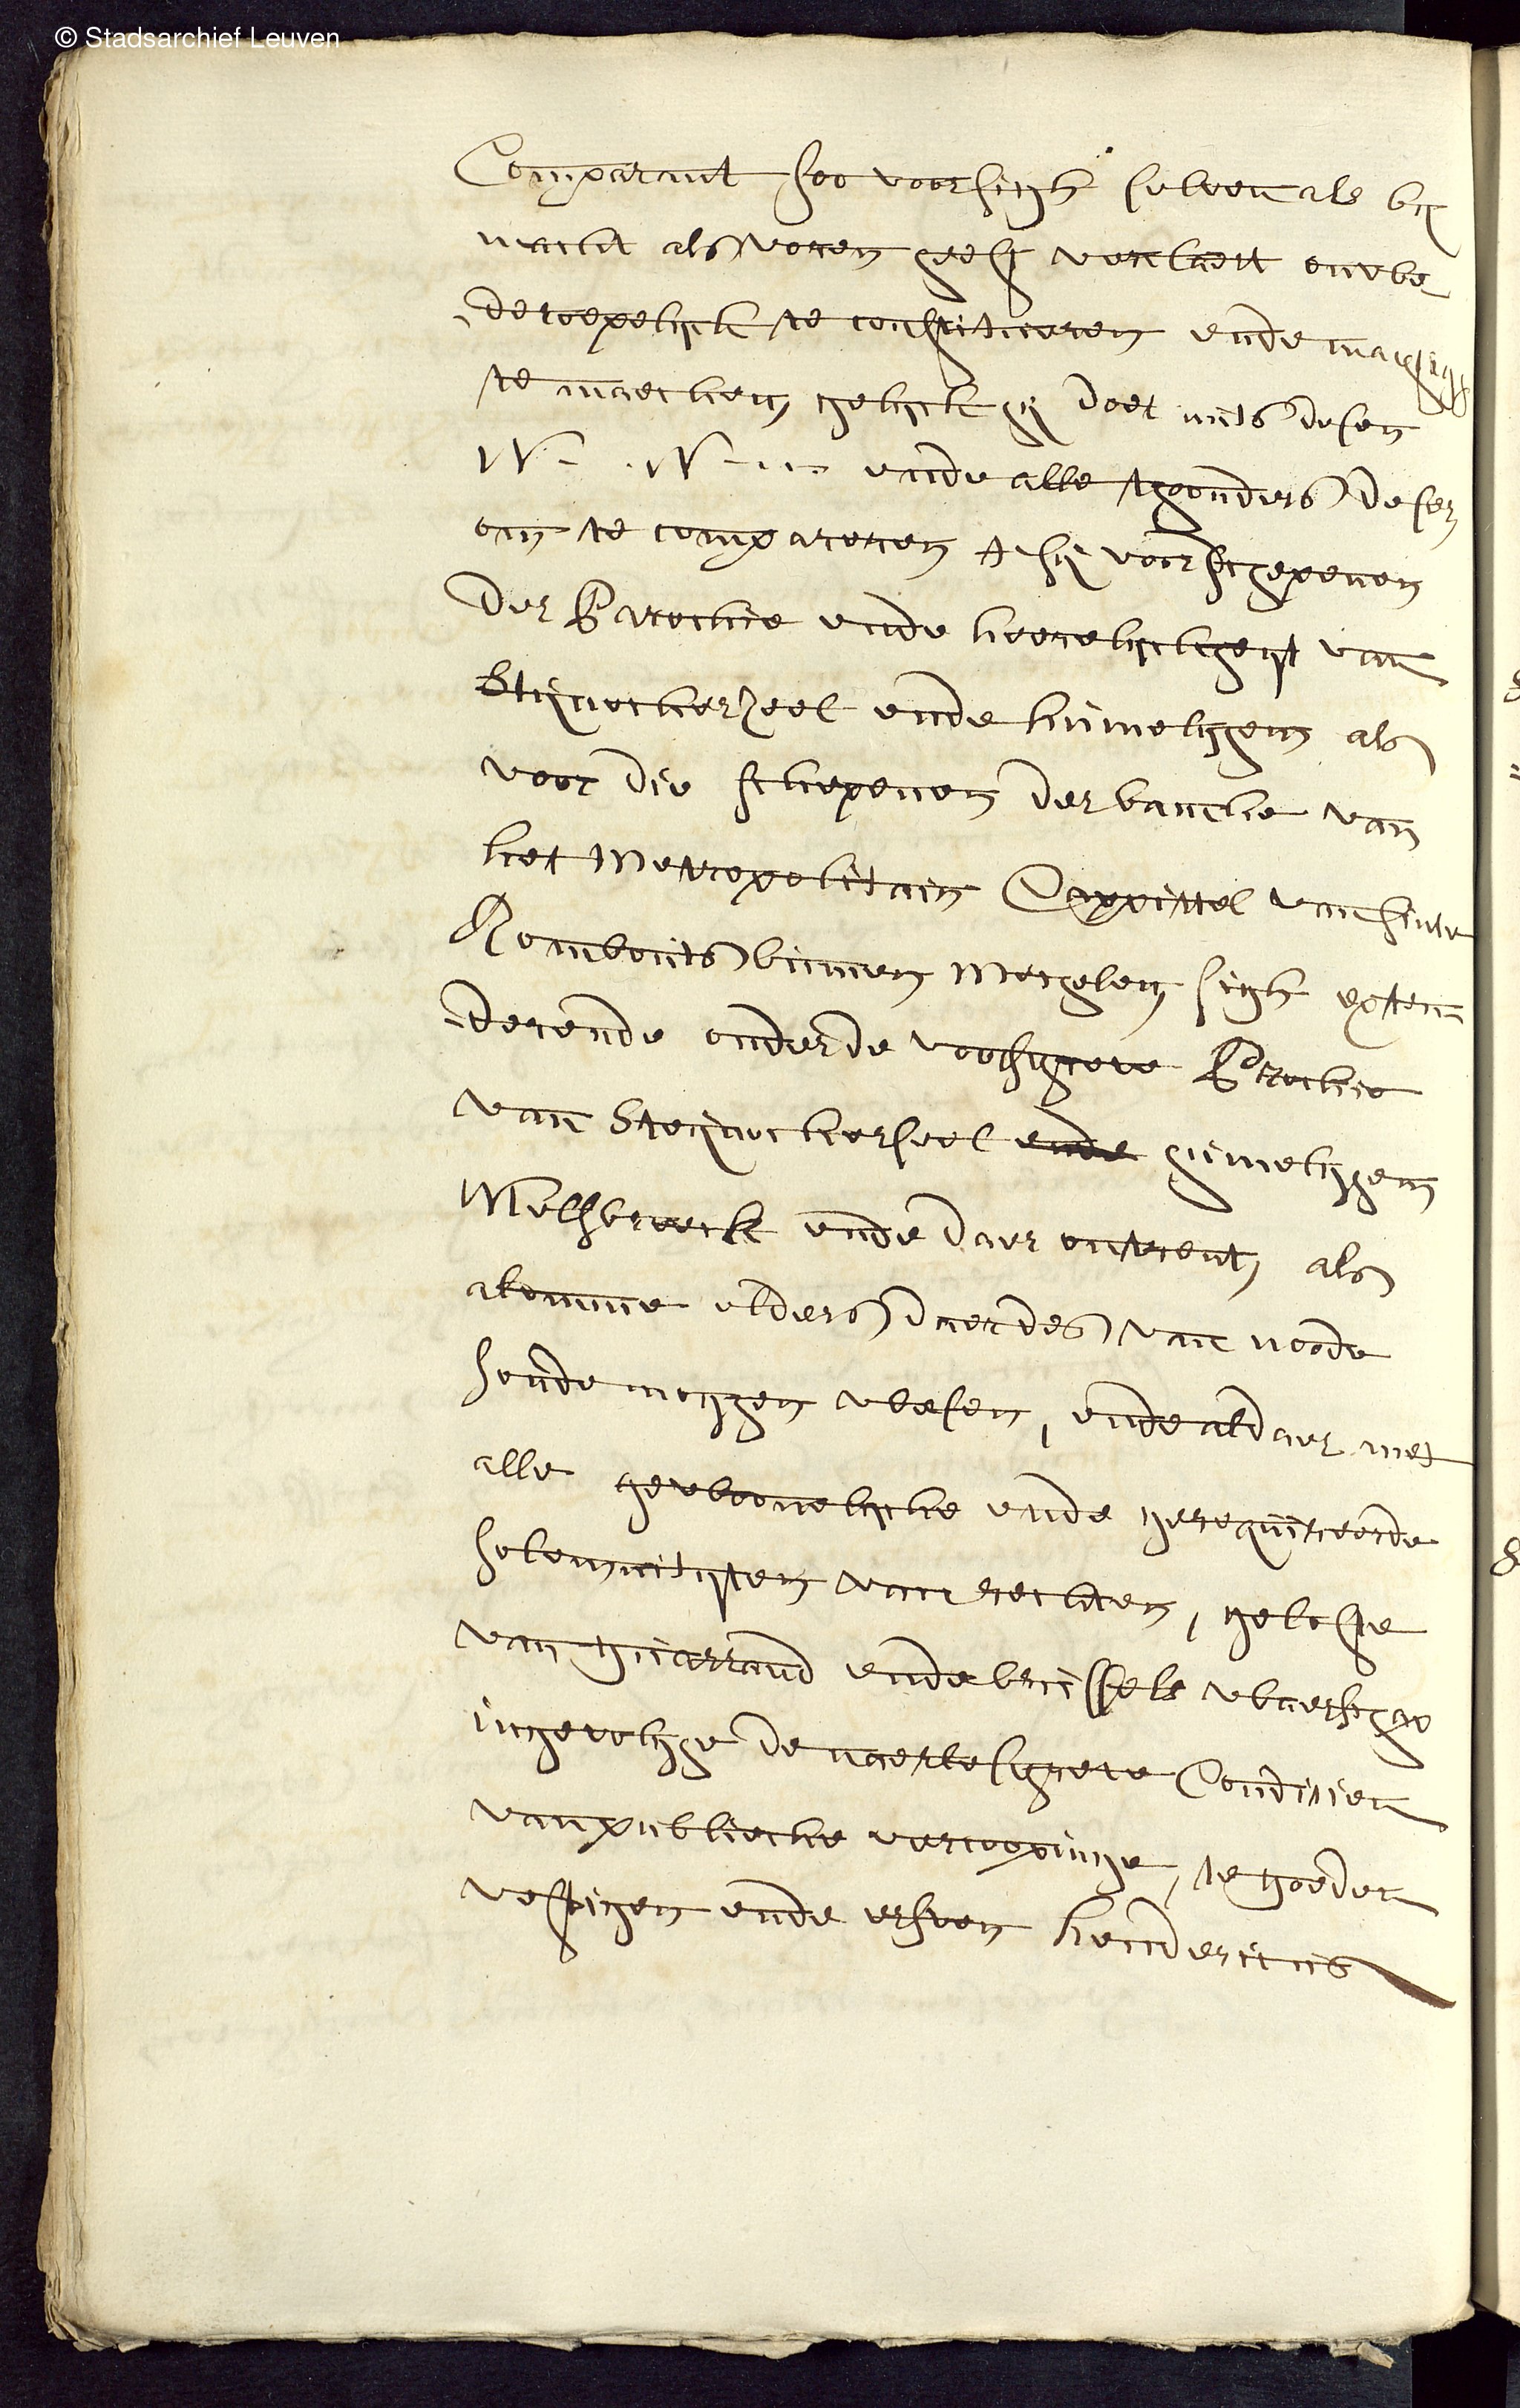 © Stadsarchief Leuven
Comparant soo voor sigh selven als by
macht als voren heeft verclaert onwe
deroepelyck te constitueren ende machtigh
te maecken gelyck hy doet mits desen
N - . N - ... ende alle thoonders deser
om te compareren t'sy voor schepenen
der Prochie ende heerelyckheyt van
Steynockerzeel ende humelghem als
voor die schepenen der bancke van
het Metropolitain Cappittel van sinte
Rombouts binnen Mechelen sigh exten
derende onder de voorschreve Prochie
van Steynockerseel ende humelghem
Melsbroeck ende daer ontrent, als
alomme elders daer des van noode
soude moghen wesen, ende aldaer met
alle gewoonelycke ende gerequireerde
solemniteyten van rechten, gelofte
van guarrand ende brussels waerschap
ingevolghe de naerbeschreve Conditien
van publiecke vercoopinge, te goeden
vestigen ende erfven hendericus